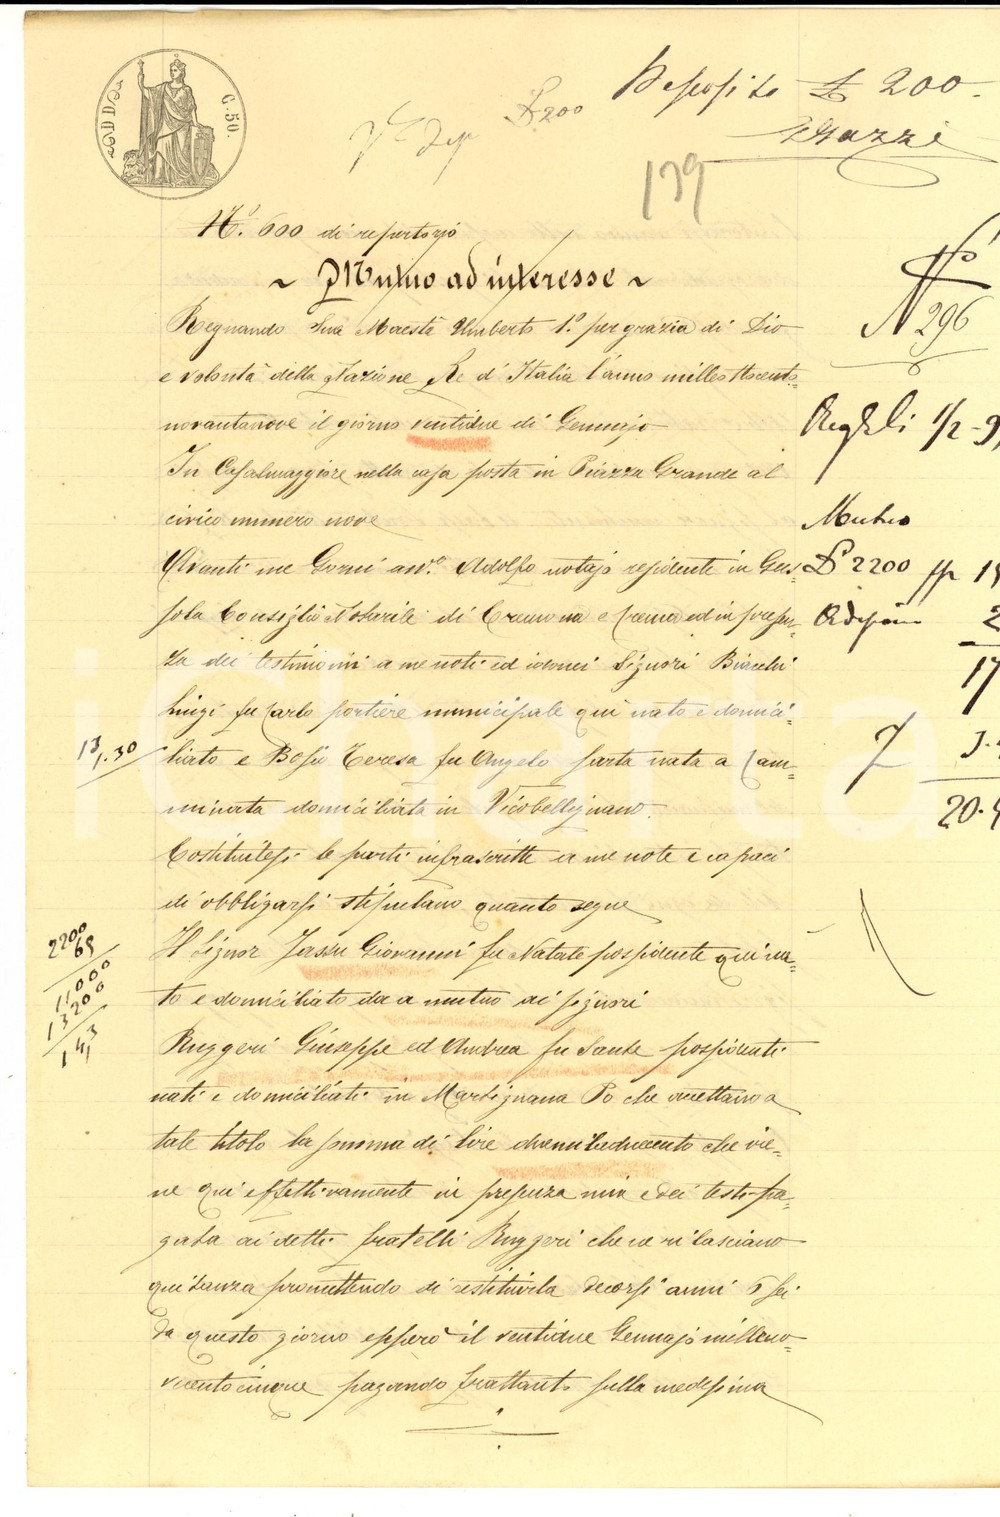 Deposito £ 200.
£ 200
139
C. 50.
N.° 600 di repertorio
~ Mutuo ad interesse ~
Regnando Sua Maestà Umberto 1.° per grazia di Dio
e volontà della Nazione Re d'Italia l'anno milleottocento=
novantanove il giorno ventidue di Gennajo
In Casalmaggiore nella casa posta in Piazza Grande al
civico numero nove
Avanti me Gorni avv.° Adolfo notajo residente in Gus=
sola Consiglio Notarile di Cremona e Crema ed in presen=
za dei testimoni a me noti ed idonei Signori Bianchi
Luigi fu Carlo portiere municipale qui nato e domici=
liato e Bosio Teresa fu Angelo sarta nata a Cam=
minata domiciliata in Vicobellignano.
Costituitesi le parti infrascritte a me note e capaci
di obbligarsi stipulano quanto segue
Il Signor Jassu Giovanni fu Natale possidente qui na=
to e domiciliato da a mutuo ai signori
Ruggeri Giuseppe ed Andrea fu Sante possidenti
nati e domiciliati in Martignana Po che accettano a
tale titolo la somma di lire duemiladuecento che vie=
ne qui effettivamente in presenza mia e dei testi pa=
gata ai detti fratelli Ruggeri che ne rilasciano
quitanza promettendo di restituirla decorsi anni 6 sei
da questo giorno epperò il ventidue Gennajo milleno=
vecentocinque pagando frattanto sulla medesima
N° 296
Reg
1/2 - 9
Mutuo
£ 2200
15
2
17
20.
13
1.30
2200
65
11000
13200
143